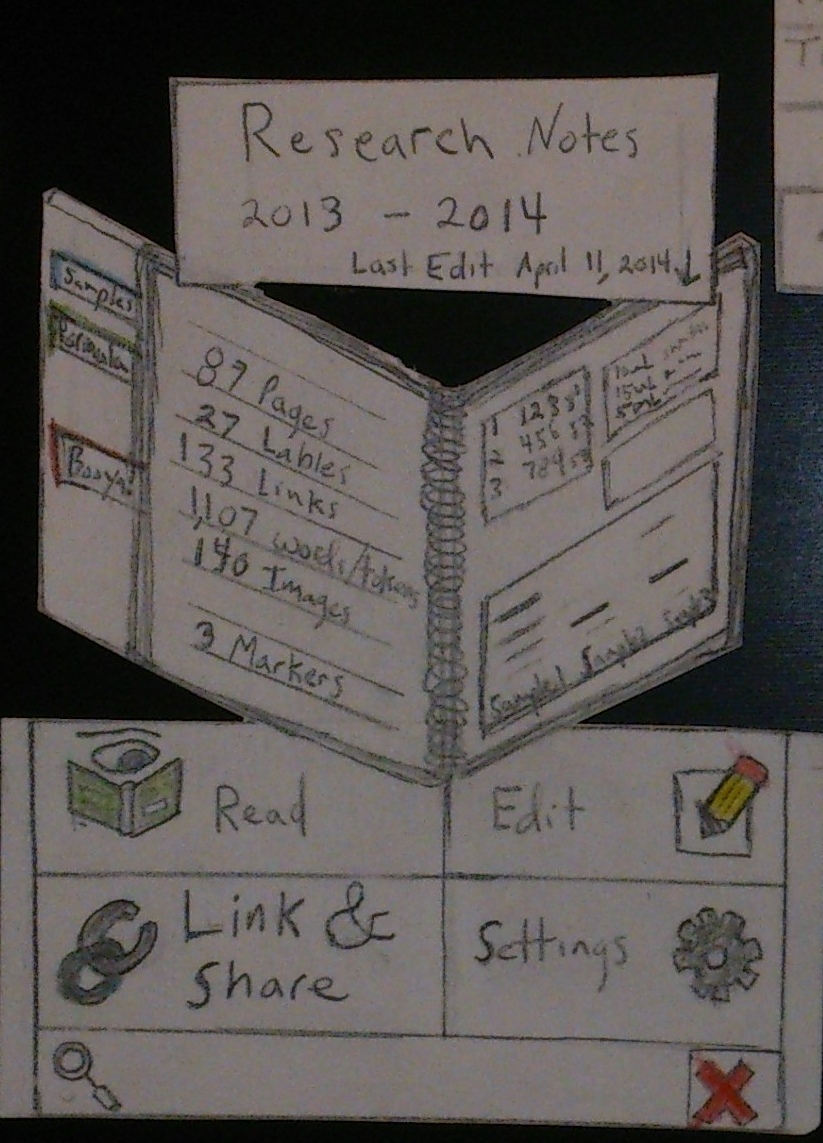 Research Notes
2013 - 2014
Last Edit April 11, 2014
Samples
87 Pages
27 Lables
133 Links
1,107 words/tokens
140 Images
3 Markers
1 123
2 456
3 789
Sample1 Sample2 Sample3
Read
Edit
Link &
Share
Settings